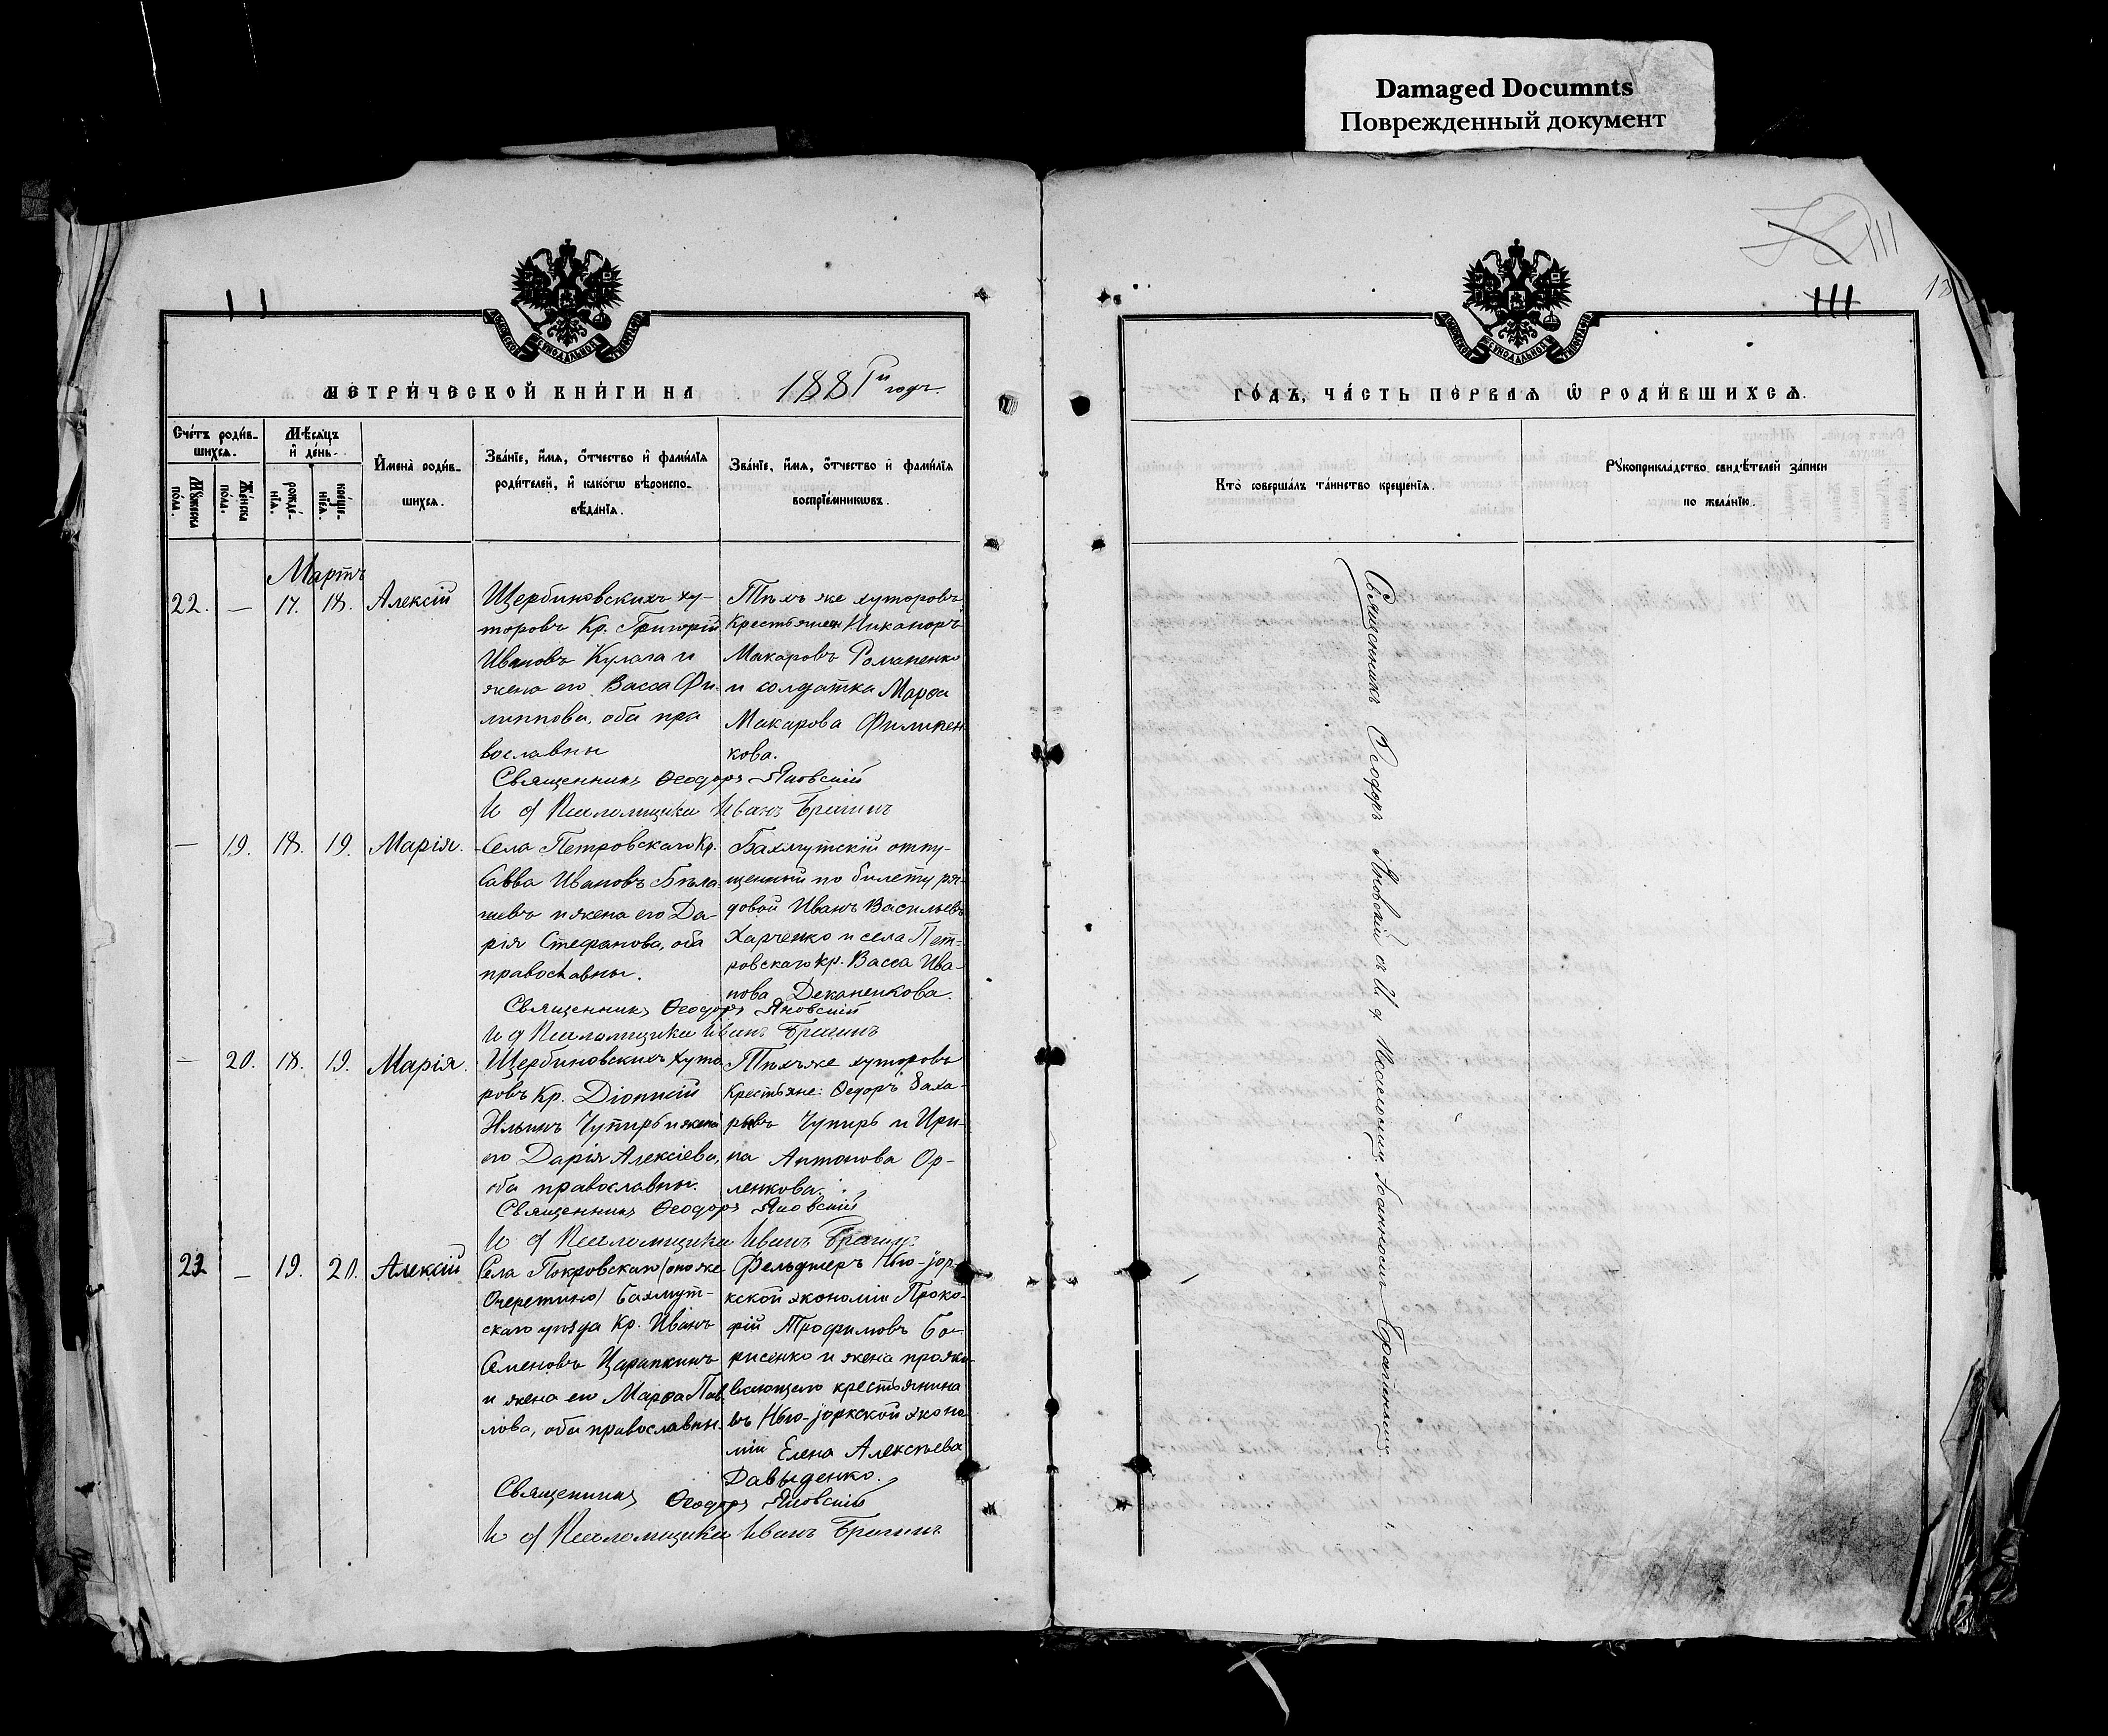 Damaged Documnts
Поврежденный документ
III
МЕТРИ́ЧЕСКОЙ КНИ́ГИ НА 1881й годъ.
Сче́тъ роди́в-
шихсѧ.
Мѣ́сѧцъ
и҆ де́нь.
Мꙋ́жеска
по́ла.
Же́нска
по́ла.
рожде́-
нїѧ.
креще-
нїѧ.
И҆мена̀ роди́в-
шихсѧ.
Зва́нїе, и҆́мѧ, ѻ҆́тчество и҆ фамі́лїѧ
роди́телей, и҆ како́гѡ вѣ̀роиспо-
вѣ́данїѧ.
Зва́нїе, и҆́мѧ, ѻ҆́тчество и҆ фамі́лїѧ
воспрїе́мникѡвъ.
Мартъ
22. — 17. 18. Алексій
Щербиновскихъ ху-
торовъ Кр. Григорій
Ивановъ Кулага и
жена его Васса Фи-
липпова, оба пра
вославны
Тѣхъ же хуторовъ
Крестьянен Никаноръ
Макаровъ Романенко
и солдатка Марѳа
Макарова Филипен
кова.
Священникъ Ѳеодоръ Яновскій
И д Псаломщика Иванъ Брагинъ
— 19. 18. 19. Марія.
Села Петровскаго Кр.
Савва Ивановъ Бѣла
шевъ и жена его Да-
рія Стефанова, оба
православны.
Бахмутскій отпу-
щенный по билету ря-
довой Иванъ Васильевъ
Харченко и села Пет-
ровскаго кр. Васса Ива-
нова Деканенкова.
Священникъ Ѳеодоръ Яновскій
И д Псаломщика Иванъ Брагинъ
— 20. 18. 19. Марія.
Щербиновскихъ хуто
ровъ Кр. Діонисій
Ильинъ Чупирь и жена
его Дарія Алексіева,
оба православны.
Тѣхъ же хуторовъ
Крестьяне: Ѳедоръ Заха-
рьевъ Чупирь и Ири-
на Антонова Ор-
ленкова.
Священникъ Ѳеодоръ Яновскій
И д Псаломщика Иванъ Брагинъ
23 — 19. 20. Алексій
Села Покровскаго (оно же
Очеретино) Бахмут-
скаго уѣзда Кр. Иванъ
Семеновъ Царапкинъ
и жена его Марѳа Пав
лова, оба православны.
Фельдшеръ Нью-іор-
кской экономіи Проко-
фій Трофимовъ Бо-
рисенко и жена прожи-
вающаго крестьянина
въ Нью-іоркской эконо
міи Елена Алексѣева
Давыденко.
Священникъ Ѳеодоръ Яновскій
И д Псаломщика Иванъ Брагинъ
III
ГО́ДЪ, ЧА́СТЬ ПЕ́РВАѦ Ѿ РОДИ́ВШИХСѦ.
Кто̀ соверша́лъ та́инство креще́нїѧ.
Рꙋкоприкла́дство свидѣ́телей за́писи
по жела́нїю.
Священникъ Ѳеодоръ Яновскій съ И д Псаломщ. Іоанносмъ Брагинымъ.